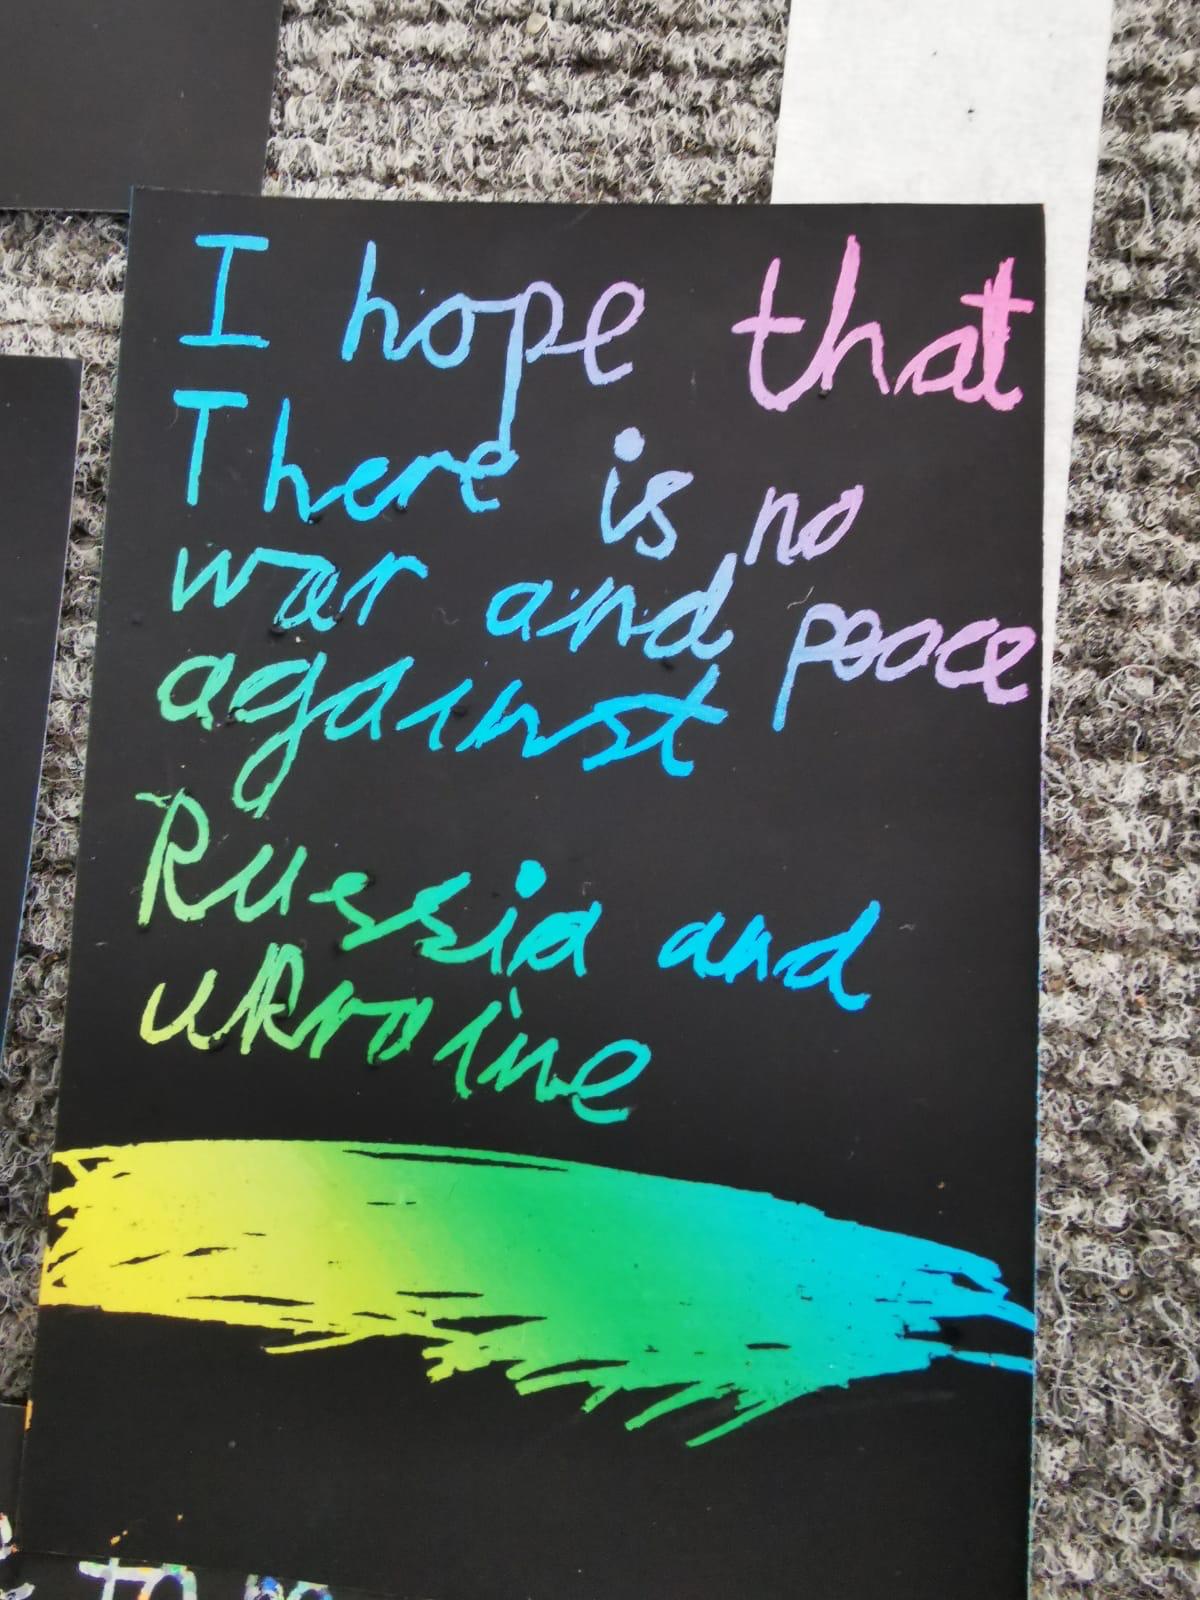 I hope that
There is no
war and peace
against
Russia and
ukraine
to